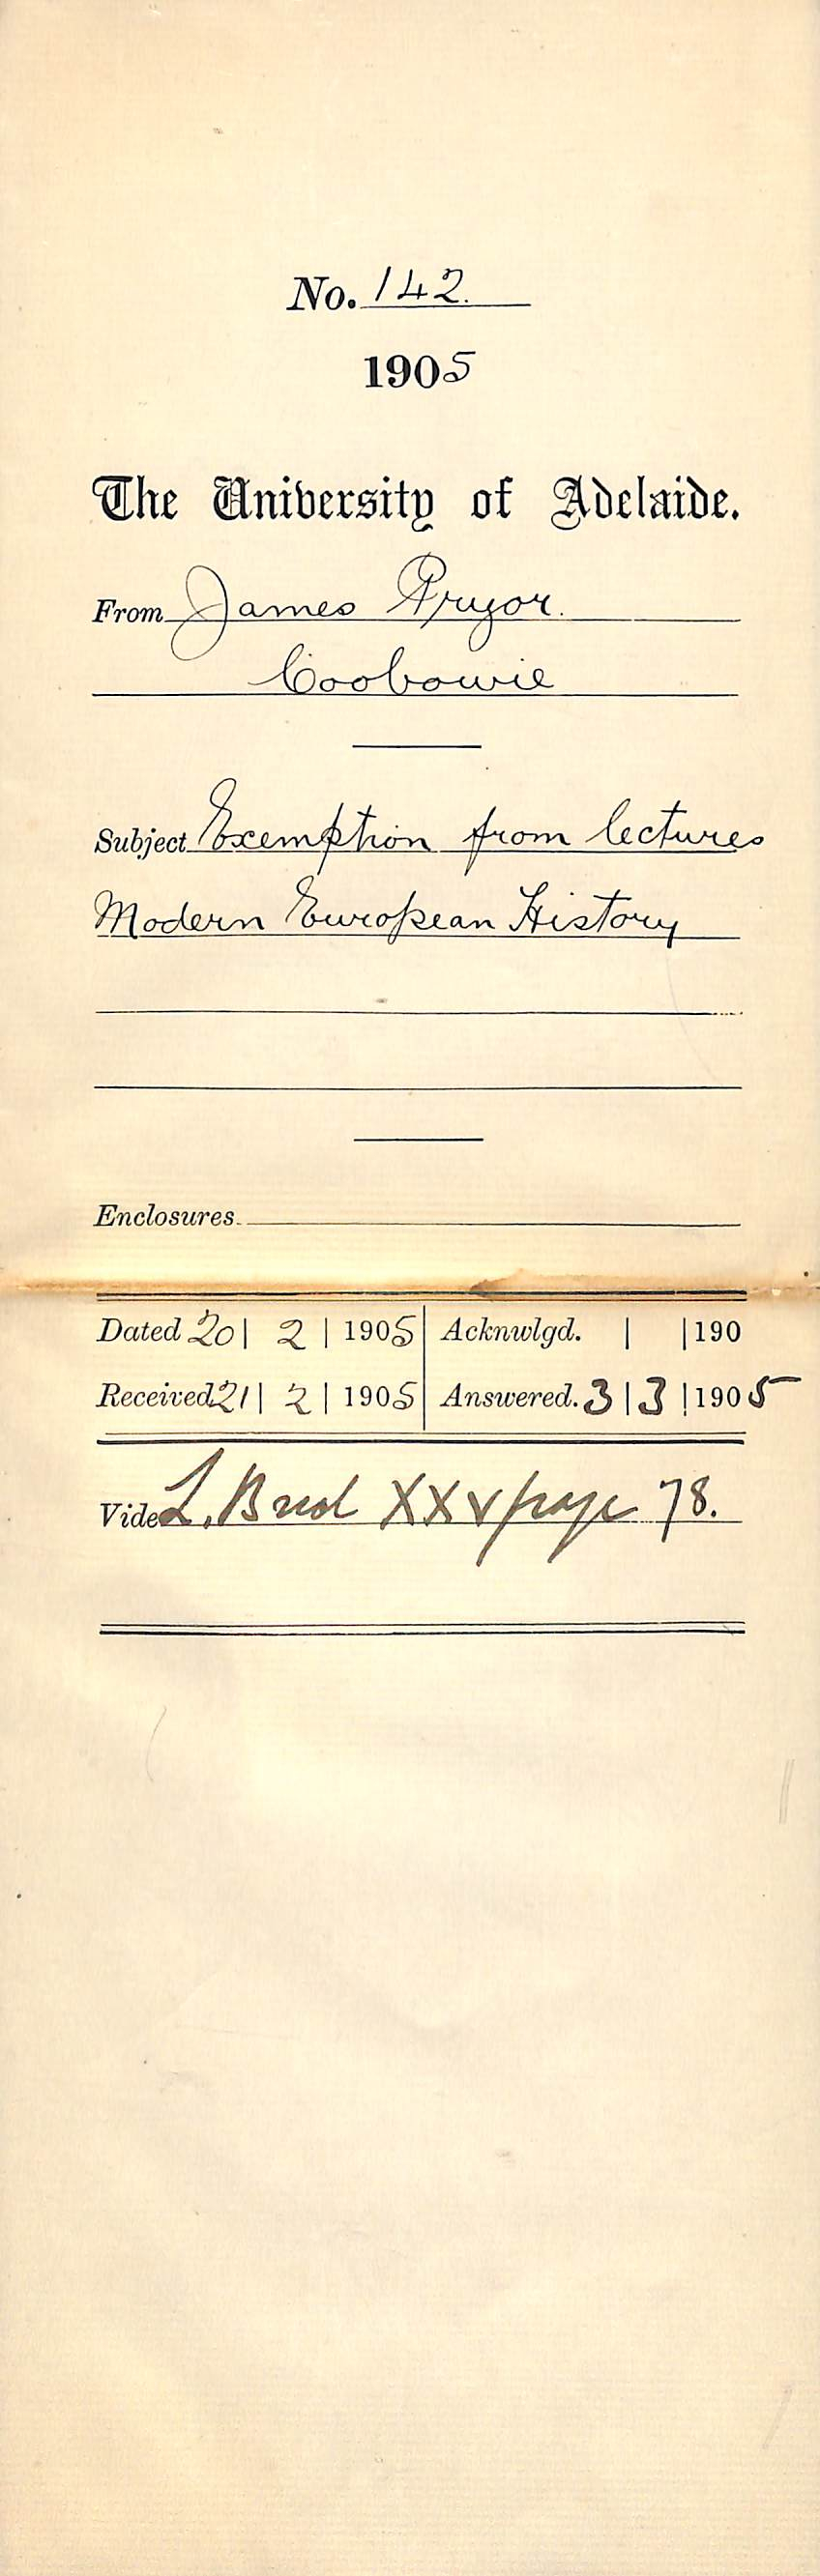 No. 142.
1905
The University of Adelaide.
From James Pryor.
Coobowie
Subject Exemption from lectures
Modern European History
Enclosures
Dated 20 | 2 | 1905 Acknwlgd. | | 190
Received 21 | 2 | 1905 Answered. 3 | 3 | 1905
Vide L. XXV page 78.